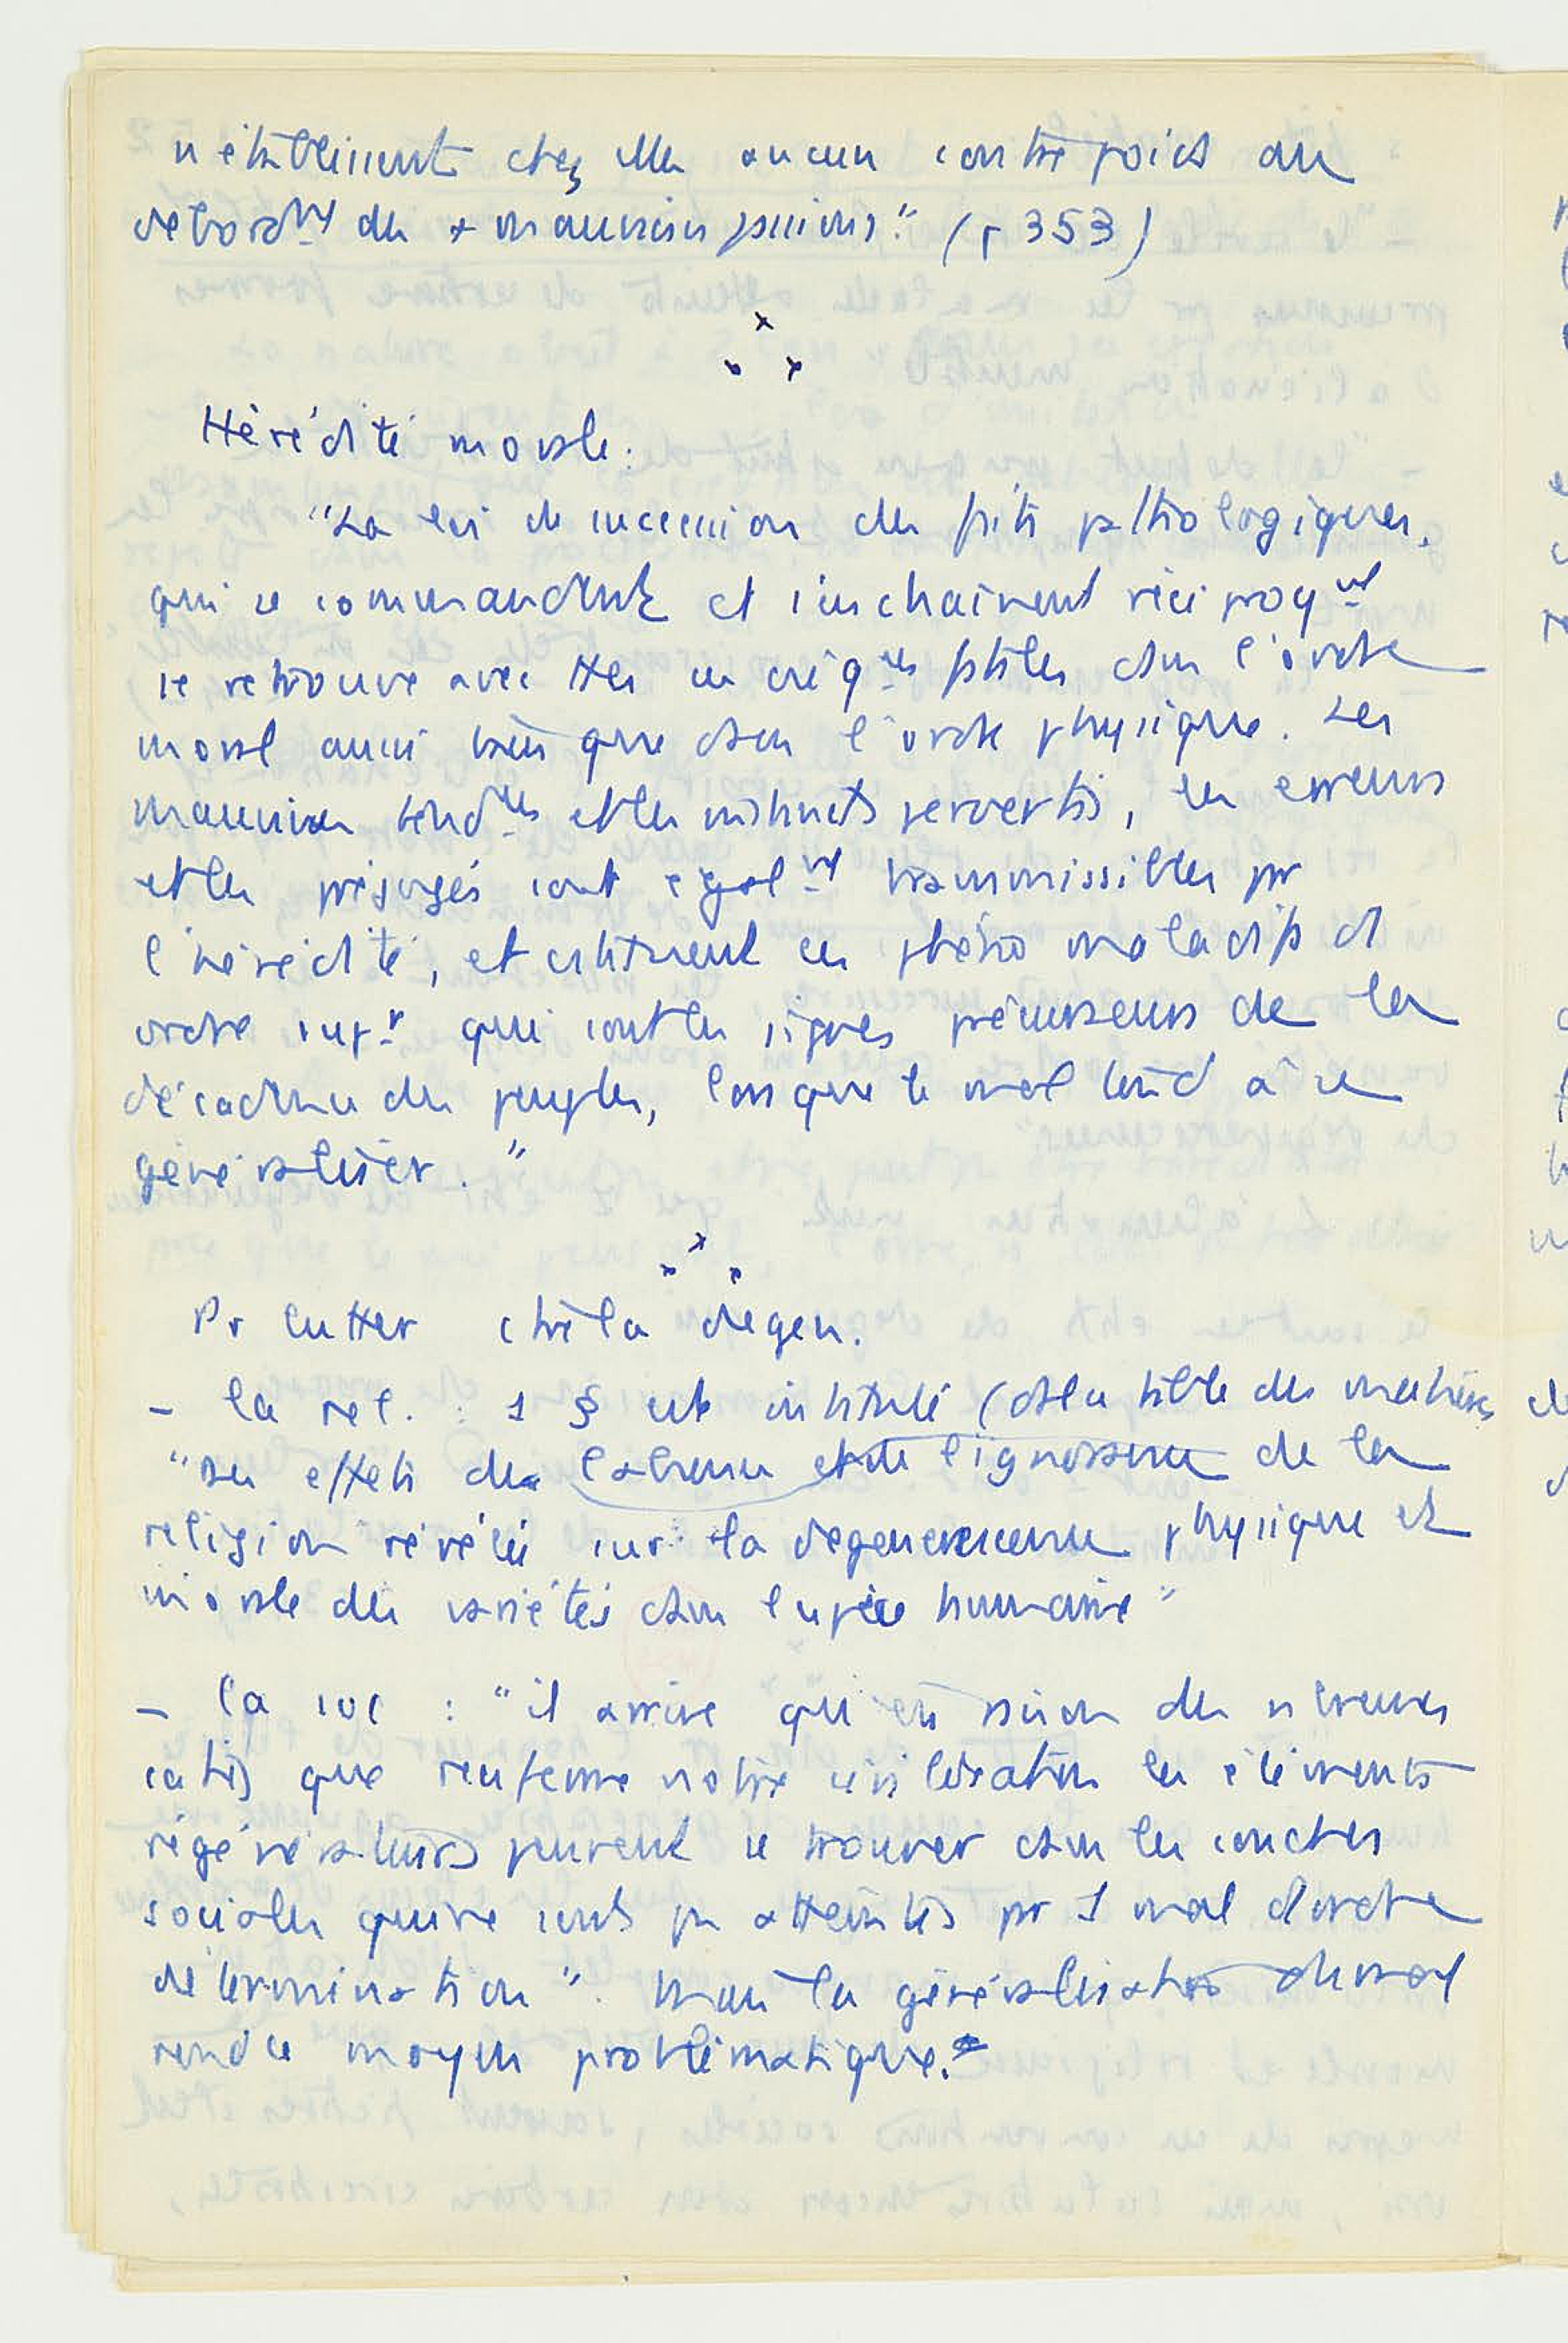 n'établissent chez elles aucun contrepoids au
debord^nt des + mauvaises passions." (p 353)
Hérédité morale :
"La loi de succession des faits pathologiques,
qui se commandent et s'enchaînent réciproq^nt
se retrouve avec ttes ses conséq^ces fatales dans l'ordre
moral aussi bien que dans l'ordre physique. Les
mauvaises tend^ces et les instincts pervertis, les erreurs
et les préjugés sont égal^nt transmissibles par
l'hérédité, et cstituent ces phéno maladifs d
ordre sup^r qui sont les signes précurseurs de la
décadence des peuples, lorsque le mal tend à se
généraliser."
Pr lutter ctre la degen.
- la rel. : 1 § est intitulé (ds la table des matières
"Des effets de l'absence et de l'ignorance de la
religion révélée sur la degenerescence physique et
morale des variétés dans l'espèce humaine"
- la soc : "il arrive qu'en raison des nbreuses
que renferme notre civilisation les éléments
régénérateurs peuvent se trouver dans les couches
sociales qui ne sont pas atteintes par 1 mal d'ordre
détermination". Mais la généralisation du mal
rend ce moyen problématique.